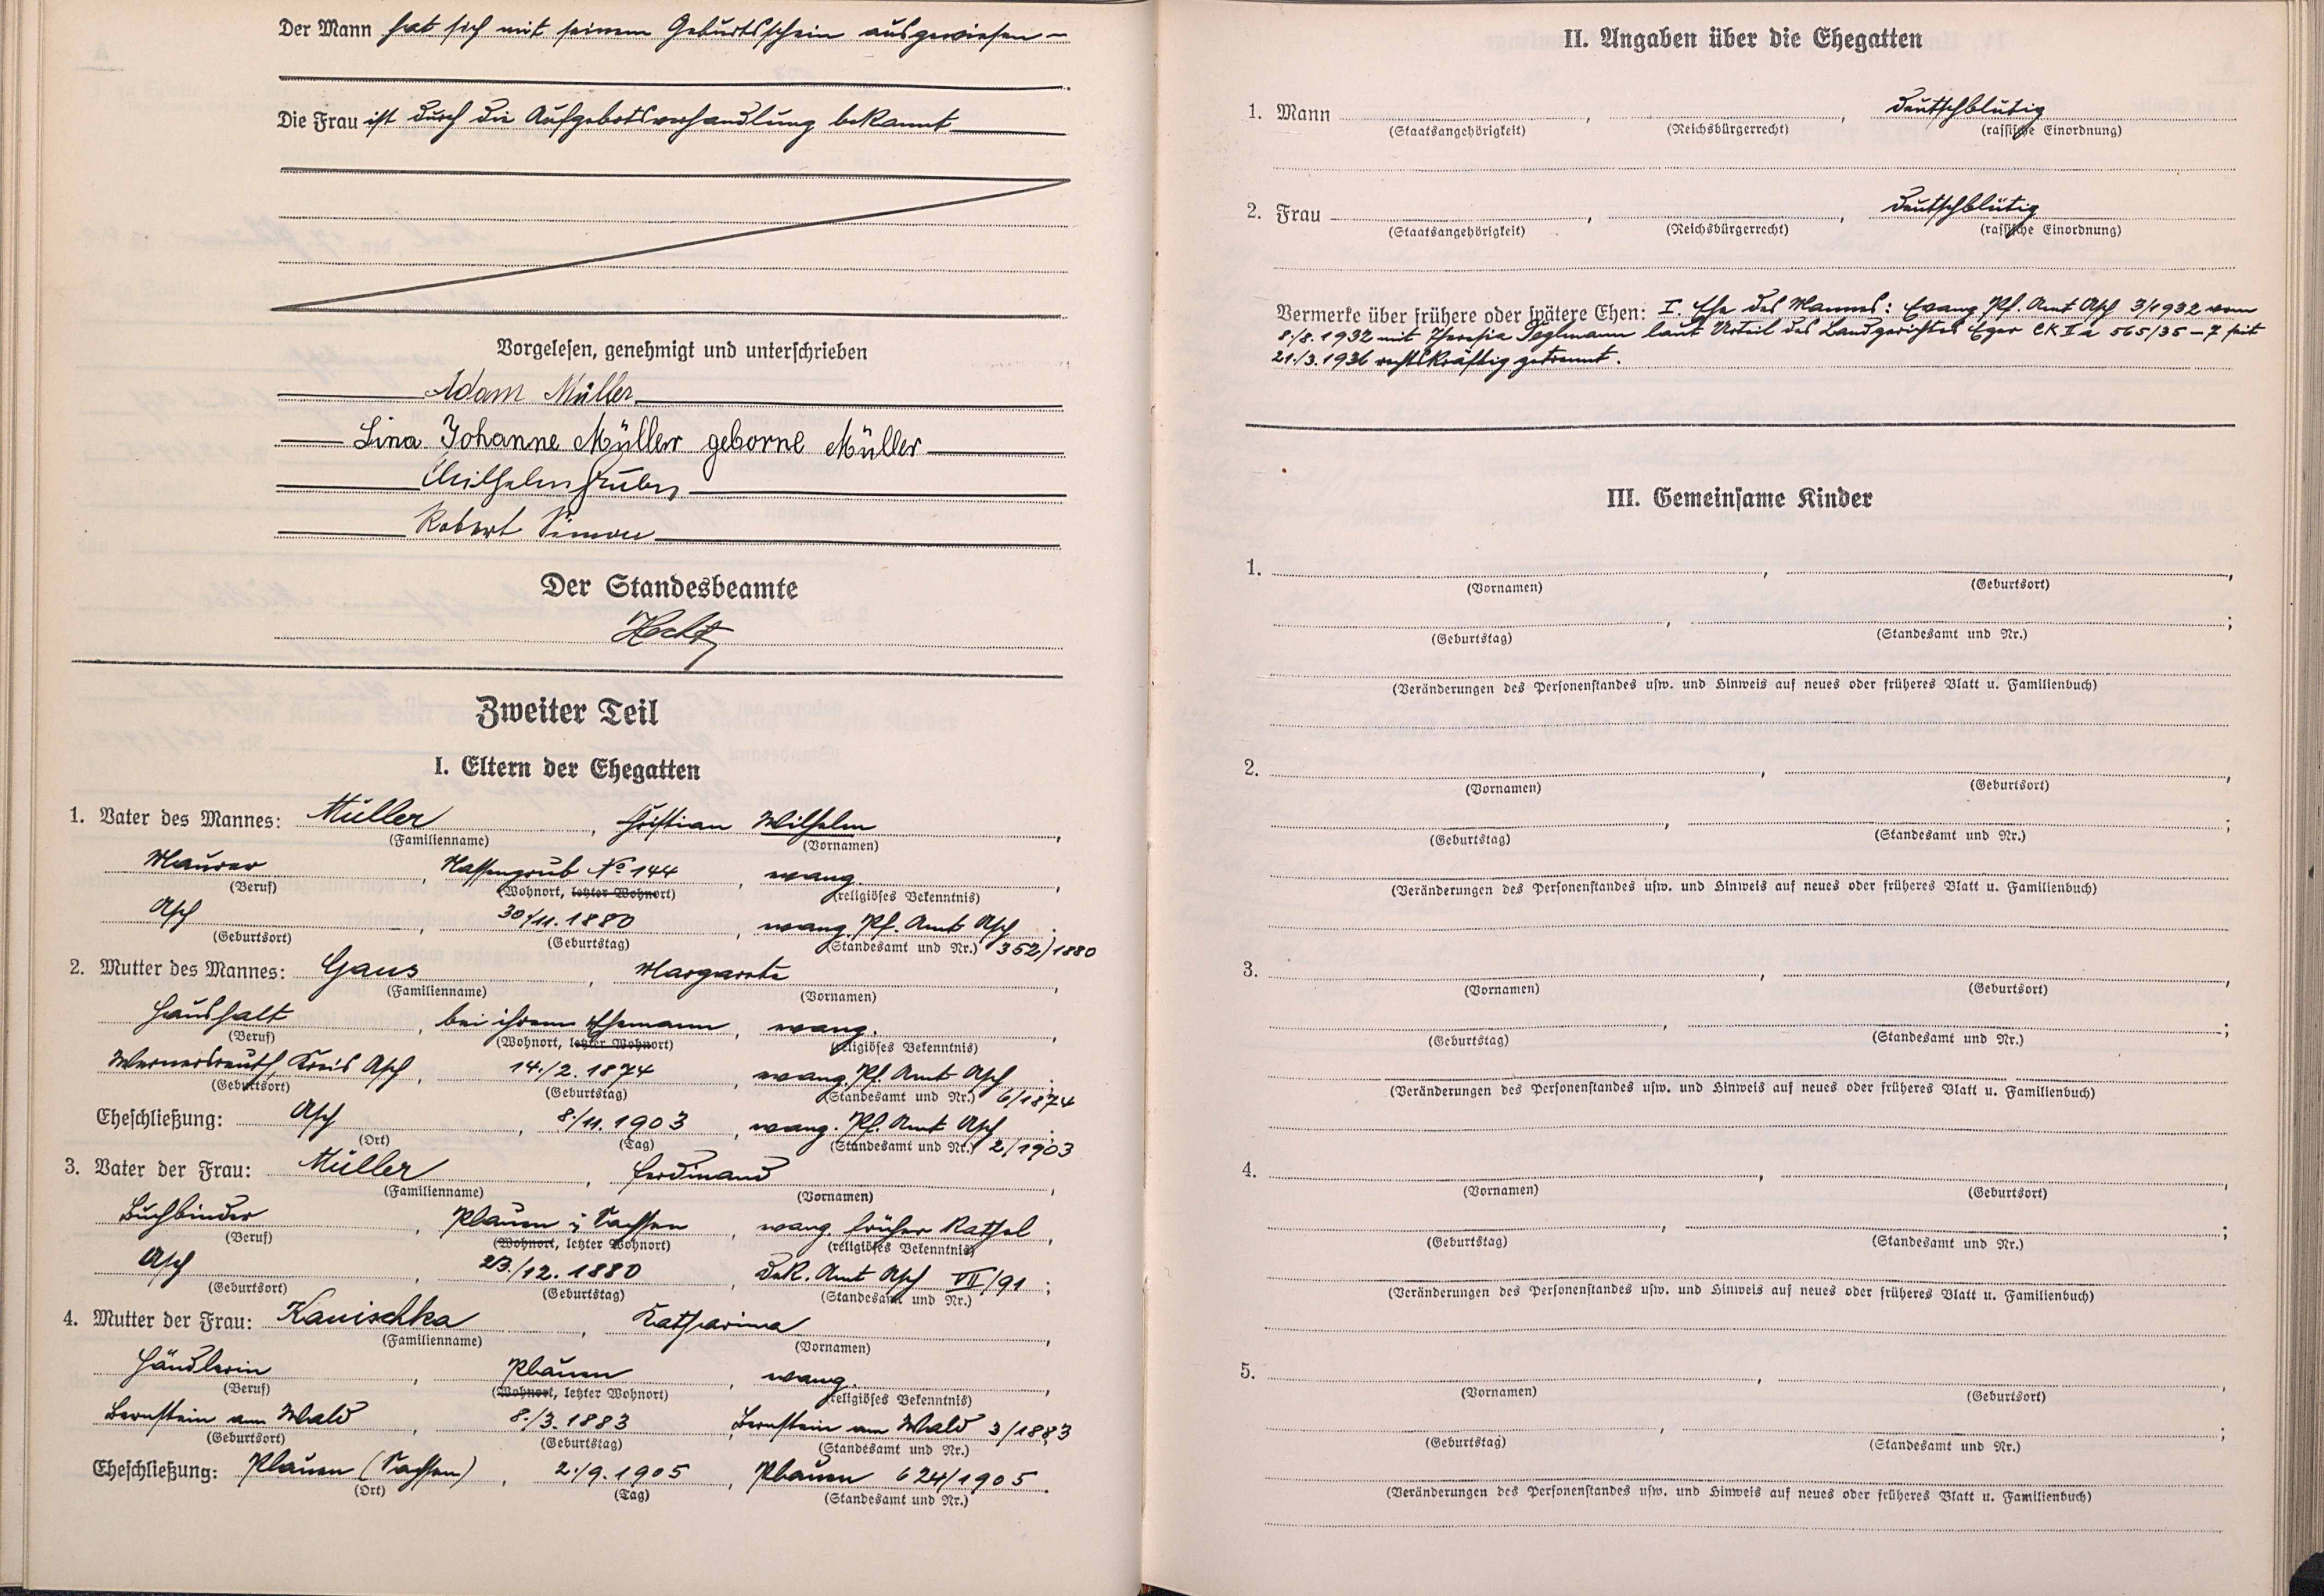 Der Mann hat sich mit seinem Geburtsschein ausgewiesen –
Die Frau ist durch die Aufgebotsverhandlung bekannt
Vorgelesen, genehmigt und unterschrieben
Adam Müller
Lina Johanne Müller geborne Müller
Wilhelm Huber
Robert Simon
Der Standesbeamte
Zweiter Teil
I. Eltern der Ehegatten
1. Vater des Mannes: Müller, Christian Wilhelm,
(Familienname) (Vornamen)
Maurer, Nassengrub No 144, evang.,
(Beruf) (Wohnort, letzter Wohnort) (religiöses Bekenntnis)
Asch, 30./11. 1880, evang. Pf. Amt Asch;
(Geburtsort) (Geburtstag) (Standesamt und Nr.) 352/1880
2. Mutter des Mannes: Gaus, Margarete,
(Familienname) (Vornamen)
Haushalt, bei ihrem Ehemann, evang.,
(Beruf) (Wohnort, letzter Wohnort) (religiöses Bekenntnis)
Wernersreuth, Kreis Asch, 14./2. 1874, evang. Pf. Amt Asch;
(Geburtsort) (Geburtstag) (Standesamt und Nr.) 6/1874
Eheschließung: Asch, 8./11. 1903, evang. Pf. Amt Asch;
(Ort) (Tag) (Standesamt und Nr.) 2/1903
3. Vater der Frau: Müller, Ferdinand,
(Familienname) (Vornamen)
Buchbinder, Plauen i. Sachsen, evang. früher Kathol,
(Beruf) (Wohnort, letzter Wohnort) (religiöses Bekenntnis)
Asch, 23./12. 1880, Dek. Amt Asch VII/91;
(Geburtsort) (Geburtstag) (Standesamt und Nr.)
4. Mutter der Frau: Kanischka, Katharina,
(Familienname) (Vornamen)
Händlerin, Plauen, evang.,
(Beruf) (Wohnort, letzter Wohnort) (religiöses Bekenntnis)
Bernstein am Wald, 8./3. 1883, Bernstein am Wald 3/1883
(Geburtsort) (Geburtstag) (Standesamt und Nr.)
Eheschließung: Plauen (Sachsen), 2./9. 1905, Plauen 624/1905.
(Ort) (Tag) (Standesamt und Nr.)
II. Angaben über die Ehegatten
1. Mann , , deutschblütig
(Staatsangehörigkeit) (Reichsbürgerrecht) (rassische Einordnung)
2. Frau , , deutschblütig
(Staatsangehörigkeit) (Reichsbürgerrecht) (rassische Einordnung)
Vermerke über frühere oder spätere Ehen: I. Ehe des Mannes: Evang. Pf. Amt Asch 3/1932 vom
8./8. 1932 mit Theresia laut Urteil des Landgerichtes Eger CK II a 565/35 – 7 seit
21./3. 1936 rechtskräftig getrennt.
III. Gemeinsame Kinder
1. , ,
(Vornamen) (Geburtsort)
, ;
(Geburtstag) (Standesamt und Nr.)
(Veränderungen des Personenstandes usw. und Hinweis auf neues oder früheres Blatt u. Familienbuch)
2. , ,
(Vornamen) (Geburtsort)
, ;
(Geburtstag) (Standesamt und Nr.)
(Veränderungen des Personenstandes usw. und Hinweis auf neues oder früheres Blatt u. Familienbuch)
3. , ,
(Vornamen) (Geburtsort)
, ;
(Geburtstag) (Standesamt und Nr.)
(Veränderungen des Personenstandes usw. und Hinweis auf neues oder früheres Blatt u. Familienbuch)
4. , ,
(Vornamen) (Geburtsort)
, ;
(Geburtstag) (Standesamt und Nr.)
(Veränderungen des Personenstandes usw. und Hinweis auf neues oder früheres Blatt u. Familienbuch)
5. , ,
(Vornamen) (Geburtsort)
, ;
(Geburtstag) (Standesamt und Nr.)
(Veränderungen des Personenstandes usw. und Hinweis auf neues oder früheres Blatt u. Familienbuch)